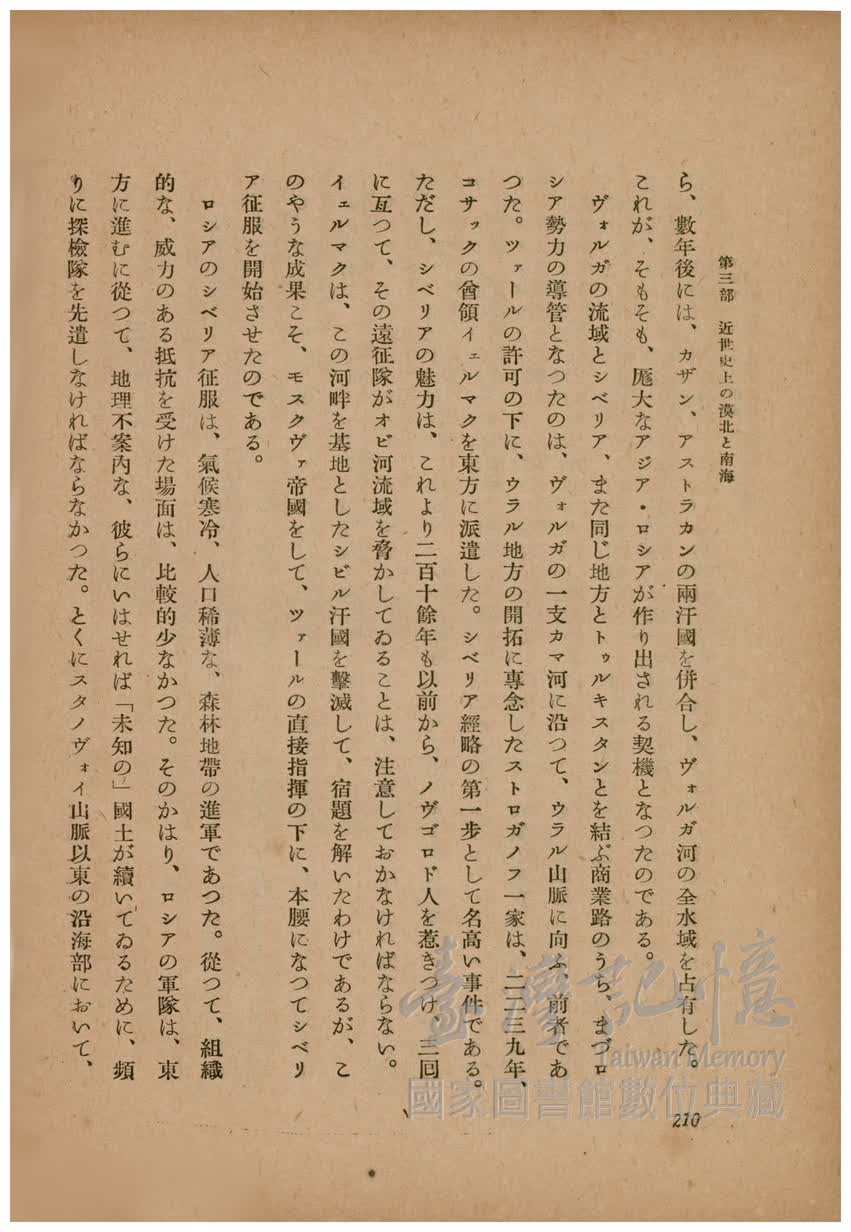 第三部　近世史上の漠北と南海
ら、數年後には、カザン、アストラカンの兩汗國を併合し、ヴォルガ河の全水域を占有した。
これが、そもそも、厖大なアジア・ロシアが作り出される契機となつたのである。
ヴォルガの流域とシベリア、また同じ地方とトゥルキスタンとを結ぶ商業路のうち、まづロ
シア勢力の導管となつたのは、ヴォルガの一支カマ河に沿つて、ウラル山脈に向ふ、前者であ
つた。ツァールの許可の下に、ウラル地方の開拓に專念したストロガノフ一家は、二二三九年、
コサックの酋領イェルマクを東方に派遣した。シベリア經略の第一步として名高い事件である。
ただし、シベリアの魅力は、これより二百十餘年も以前から、ノヴゴロド人を惹きつけ、三囘
に亙つて、その遠征隊がオビ河流域を脅かしてゐることは、注意しておかなければならない。
イェルマクは、この河畔を基地としたシビル汗國を擊滅して、宿題を解いたわけであるが、こ
のやうな成果こそ、モスクヴァ帝國をして、ツァールの直接指揮の下に、本腰になつてシベリ
ア征服を開始させたのである。
ロシアのシベリア征服は、氣候寒冷、人口稀薄な、森林地帶の進軍であつた。從つて、組織
的な、威力のある抵抗を受けた場面は、比較的少なかつた。そのかはり、ロシアの軍隊は、東
方に進むに從つて、地理不案內な、彼らにいはせれば「未知の」國土が續いてゐるために、頻
りに探檢隊を先遣しなければならなかつた。とくにスタノヴォイ山脈以東の沿海部において、
210
臺灣記憶
Taiwan Memory
國家圖書館數位典藏